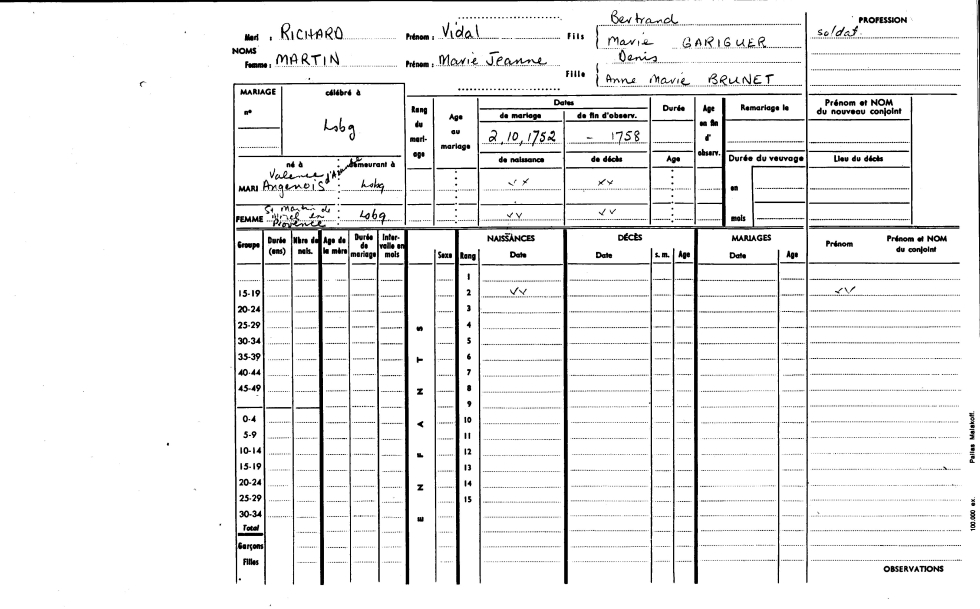 Mari : RICHARD Prénom : Vidal Fils Bertrand
Marie GARIGUER
NOMS
Femme : MARTIN Prénom : Marie Jeanne Fille Denis
Anne Marie BRUNET
PROFESSION
soldat
MARIAGE célébré à
n° Lsbg
Rang du mariage
Age au mariage
Dates
de mariage de fin d'observ.
2,10,1752 - 1758
de naissance de décès
Durée
Age
Age en fin d'observ.
Remariage le
Durée du veuvage
en
mois
Prénom et NOM du nouveau conjoint
Lieu du décès
né à demeurant à
MARI Valence Angenois Lsbg vx xx
FEMME St Martin de en Provence Lsbg vv vv
Groupe Durée (ans) Nbre de nais. Age de la mère Durée de mariage Intervalle en mois
ENFANTS
Sexe Rang NAISSANCES Date DÉCÈS Date s. m. Age MARIAGES Date Age Prénom Prénom et NOM du conjoint
1
15-19 2 vv vv
20-24 3
25-29 4
30-34 5
35-39 6
40-44 7
45-49 8
9
0-4 10
5-9 11
10-14 12
15-19 13
20-24 14
25-29 15
30-34
Total
Garçons
Filles
OBSERVATIONS
100.000 ex. Pallas Malakoff.